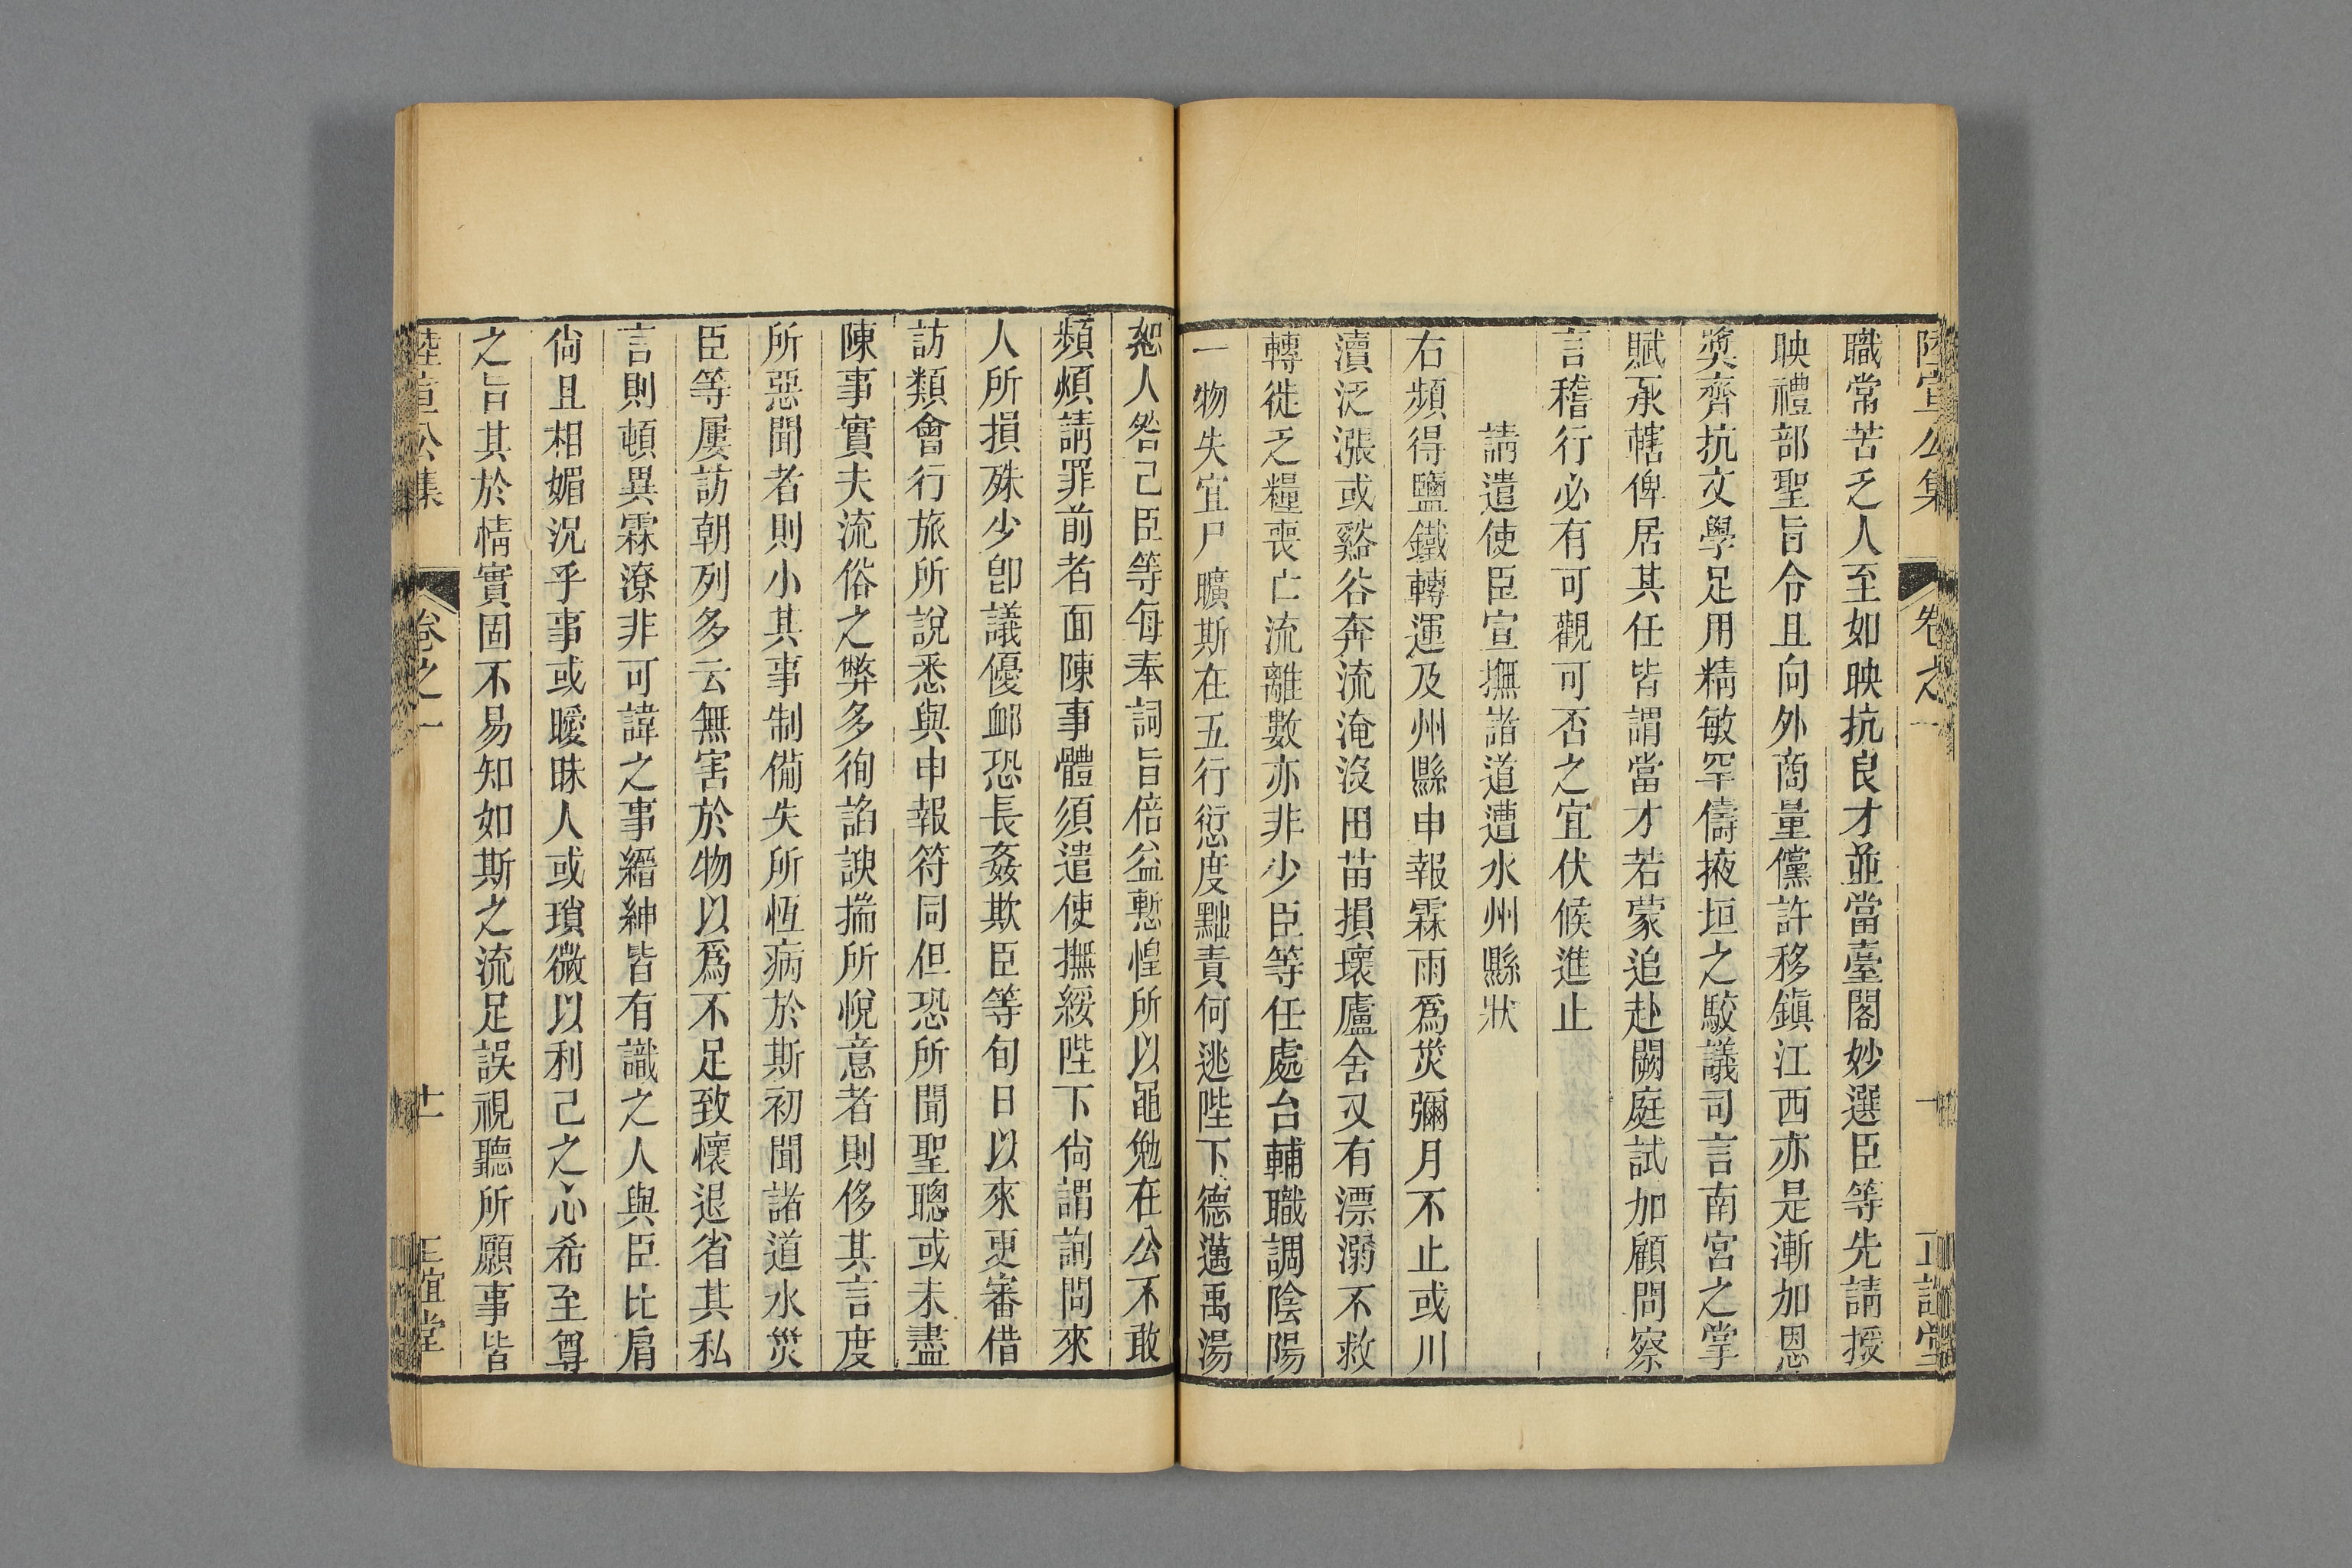 陸宣公集 卷之一 正誼堂
職常苦乏人至如映抗良才並當臺閣妙選臣等先請授
映禮部聖旨令且向外商量儻許移鎮江西亦是漸加恩
奬齊抗文學足用精敏罕儔掖垣之駮議司言南宮之掌
賦承轄俾居其任皆謂當才若蒙追赴闕庭試加顧問察
言稽行必有可觀可否之宜伏候進止
請遣使臣宣撫諸道遭水州縣狀
右頻得鹽鐵轉運及州縣申報霖雨爲災彌月不止或川
瀆泛漲或谿谷奔流淹沒田苗損壞廬舍又有漂溺不救
轉徙乏糧喪亡流離數亦非少臣等任處台輔職調陰陽
一物失宜尸曠斯在五行愆度黜責何逃陛下德邁禹湯
恕人咎己臣等每奉詞旨倍益慙惶所以黽勉在公不敢
頻煩請罪前者面陳事體須遣使撫綏陛下尙謂詢問來
人所損殊少卽議優卹恐長姦欺臣等旬日以來更審借
訪類會行旅所說悉與申報符同但恐所聞聖聰或未盡
陳事實夫流俗之弊多徇諂諛揣所悅意者則侈其言度
所惡聞者則小其事制備失所恆病於斯初聞諸道水災
臣等屢訪朝列多云無害於物以爲不足致懷退省其私
言則頓異霖潦非可諱之事縉紳皆有識之人與臣比肩
尙且相媚況乎事或曖昧人或瑣微以利己之心希至尊
之旨其於情實固不易知如斯之流足誤視聽所願事皆
陸宣公集 卷之一 十一 正誼堂